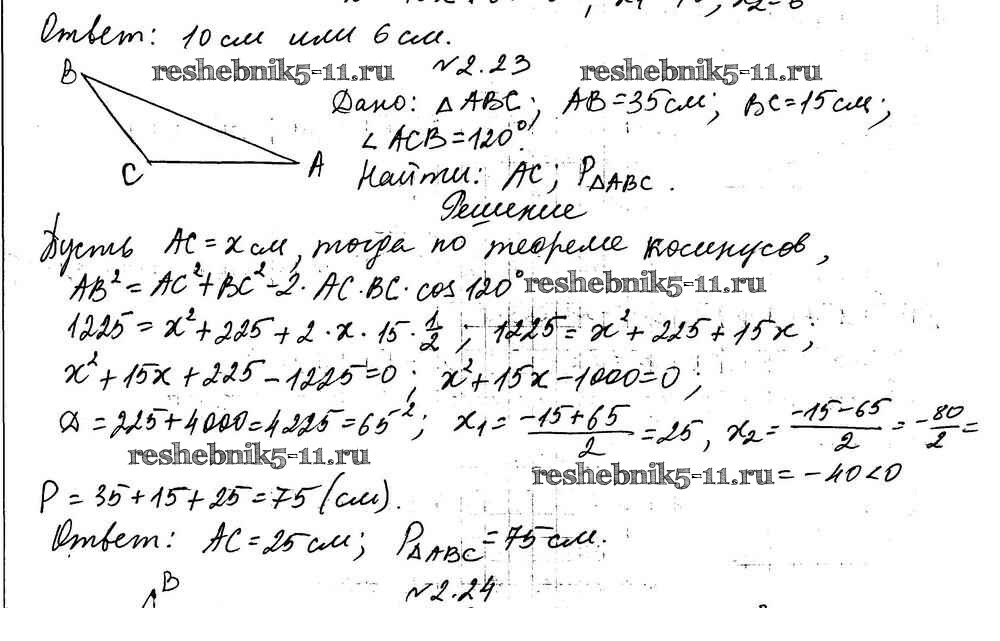 Ответ: 10 см или 6 см.
B
reshebnik5-11.ru №2.23 reshebnik5-11.ru
Дано: △ABC; AB=35см; BC=15см;
∠ACB=120°.
C A
Найти: AC; P△ABC.
Решение
Пусть AC=x см, тогда по теореме косинусов,
AB²=AC²+BC²-2·AC·BC·cos120° reshebnik5-11.ru
1225=x²+225+2·x·15·1/2; 1225=x²+225+15x;
x²+15x+225-1225=0; x²+15x-1000=0;
D=225+4000=4225=65²; x₁=(-15+65)/2=25, x₂=(-15-65)/2=-80/2=
reshebnik5-11.ru reshebnik5-11.ru =-40<0
P=35+15+25=75(см).
Ответ: AC=25см; P△ABC=75см.
B
№2.24